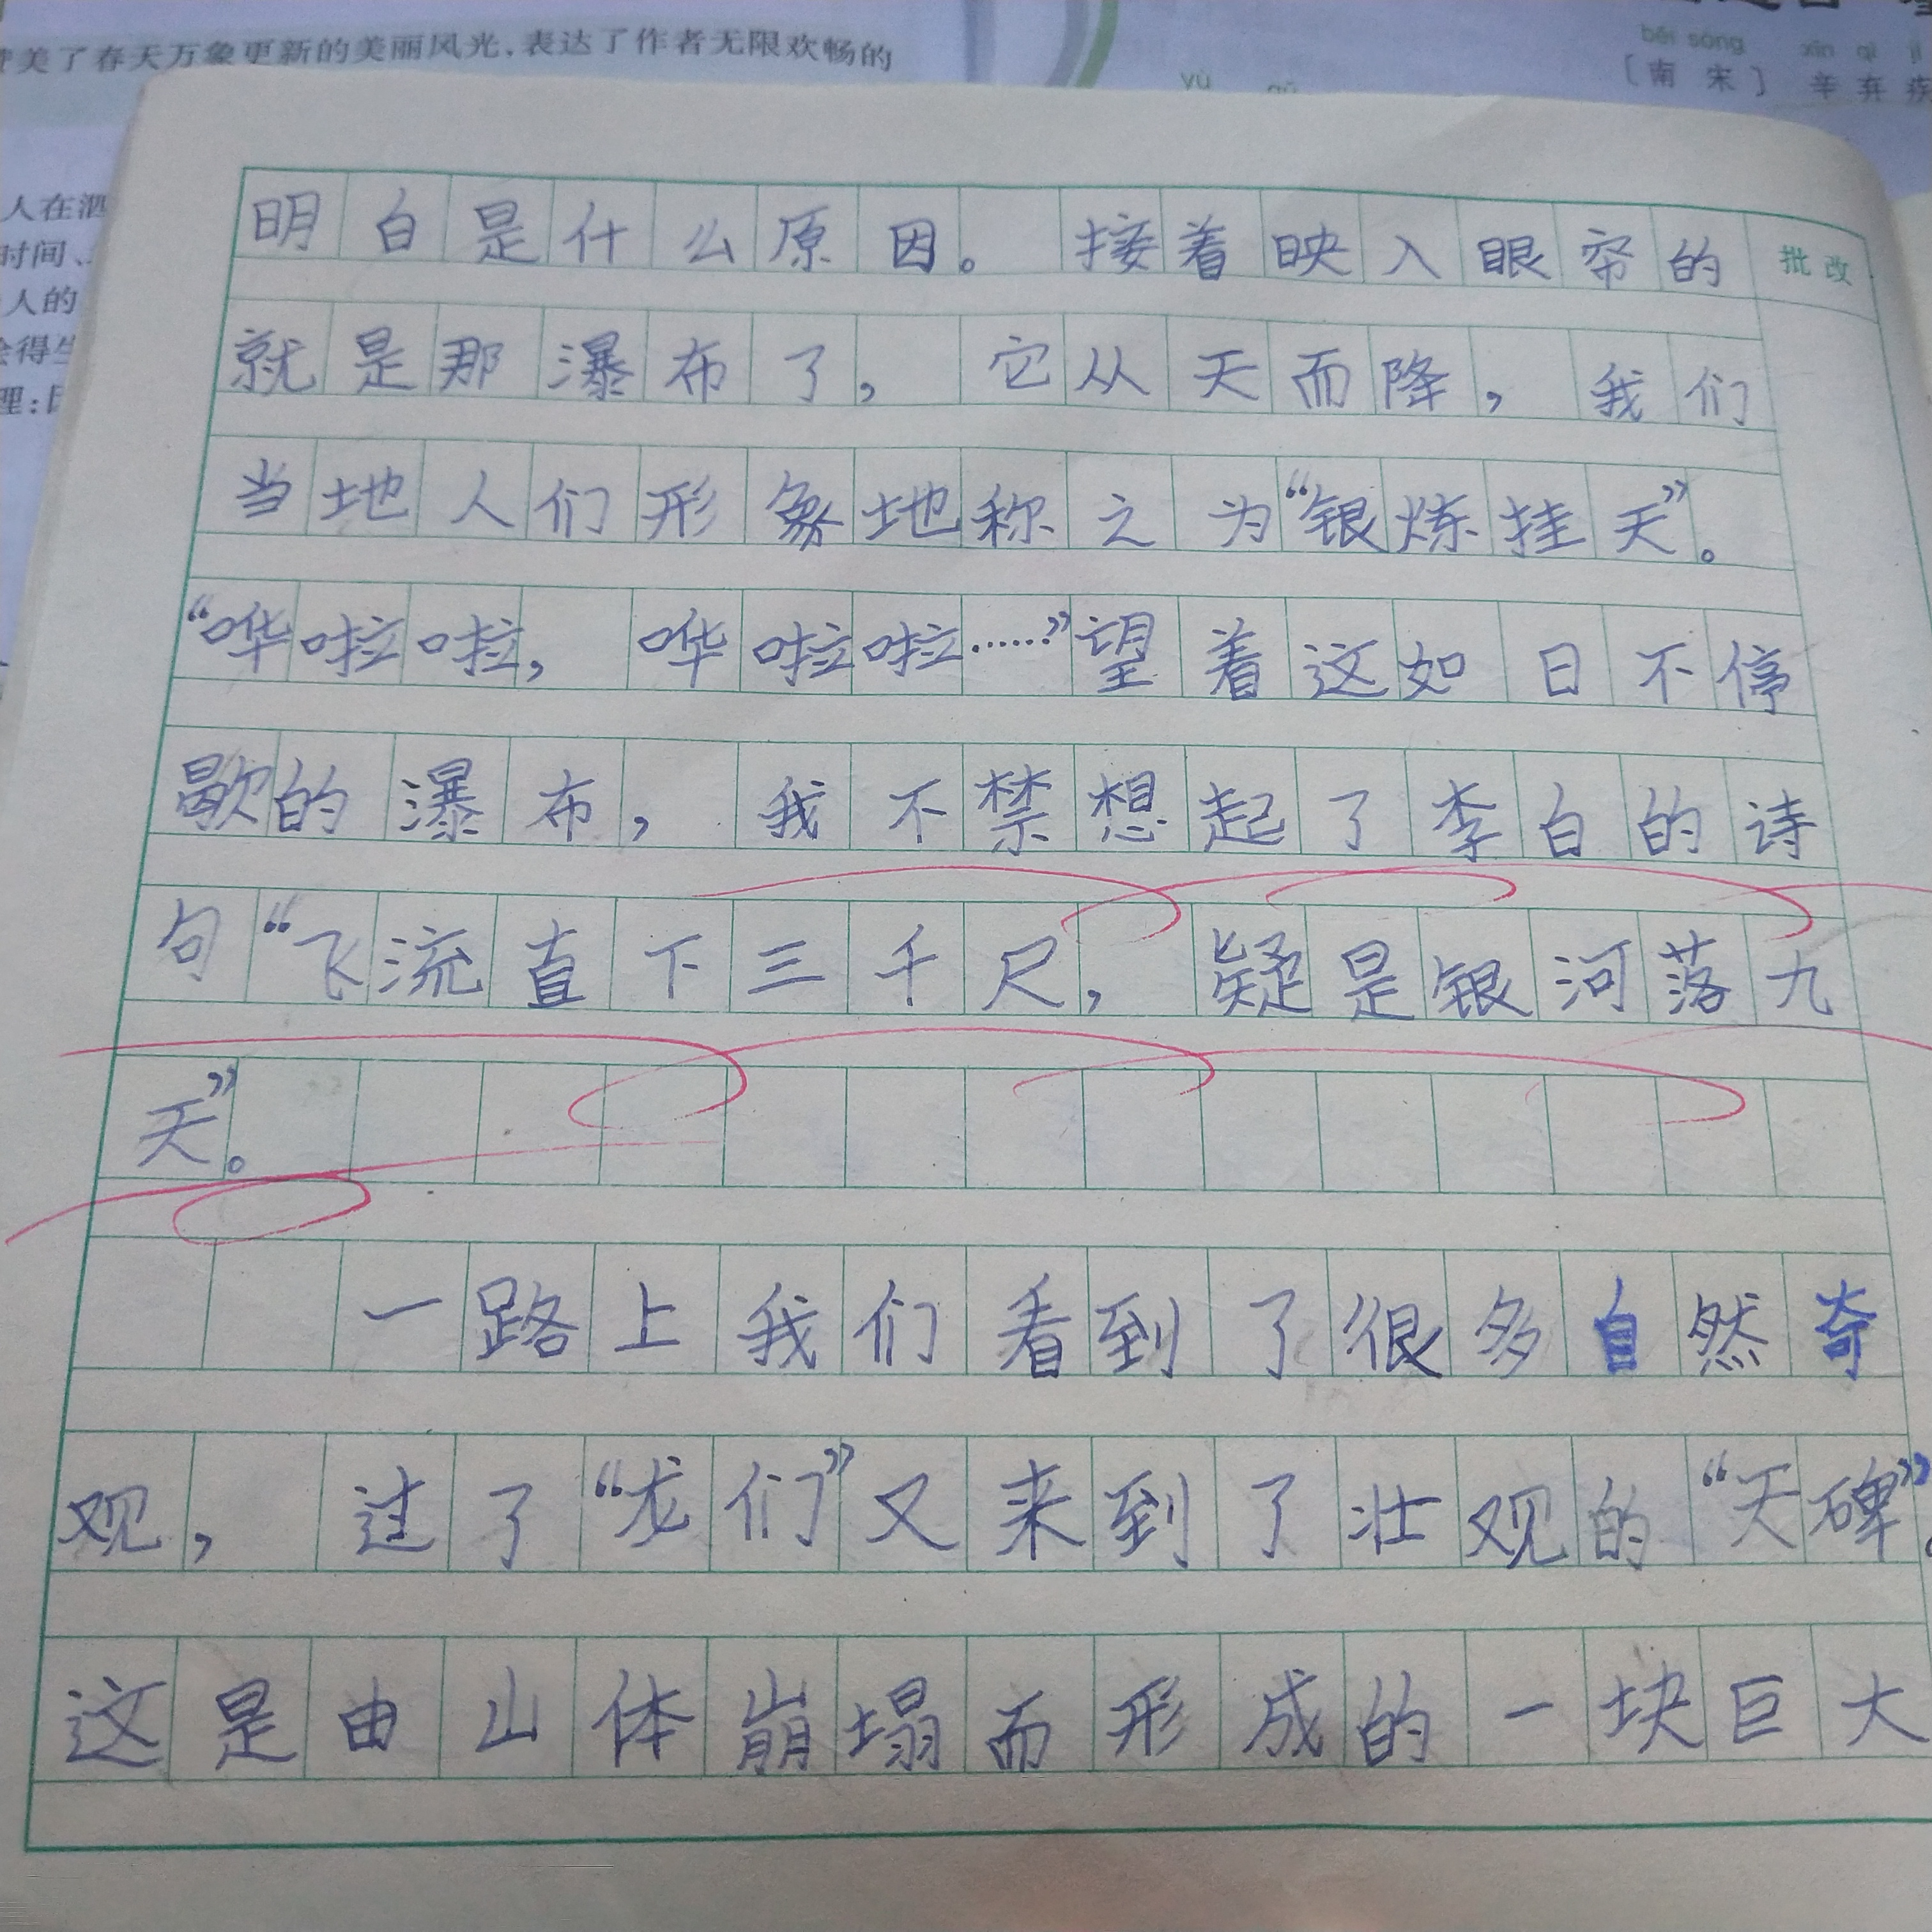 美了春天万象更新的美丽风光,表达了作者无限欢畅的
běi sòng xīn qì jí
〔南宋〕辛弃疾
yù
人在泗
时间、
人的
会得生
理:
批改
明白是什么原因。接着映入眼帘的
就是那瀑布了,它从天而降,我们
当地人们形象地称之为“银炼挂天”。
“哗啦啦,哗啦啦……”望着这如日不停
歇的瀑布,我不禁想起了李白的诗
句“飞流直下三千尺,疑是银河落九
天”。
一路上我们看到了很多自然奇
观,过了“龙们”又来到了壮观的“天碑”。
这是由山体崩塌而形成的一块巨大